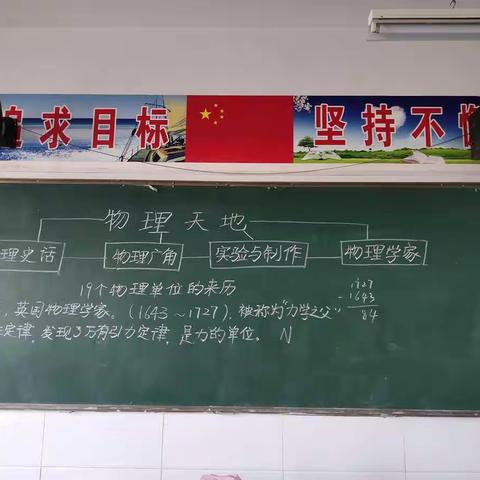 追求目标 坚持不懈
物理天地
理史话 物理广角 实验与制作 物理学家
19个物理单位的来历
，英国物理学家。(1643～1727)，被称为"力学之父"
定律，发现了万有引力定律，是力的单位。 N
1727
- 1643
84